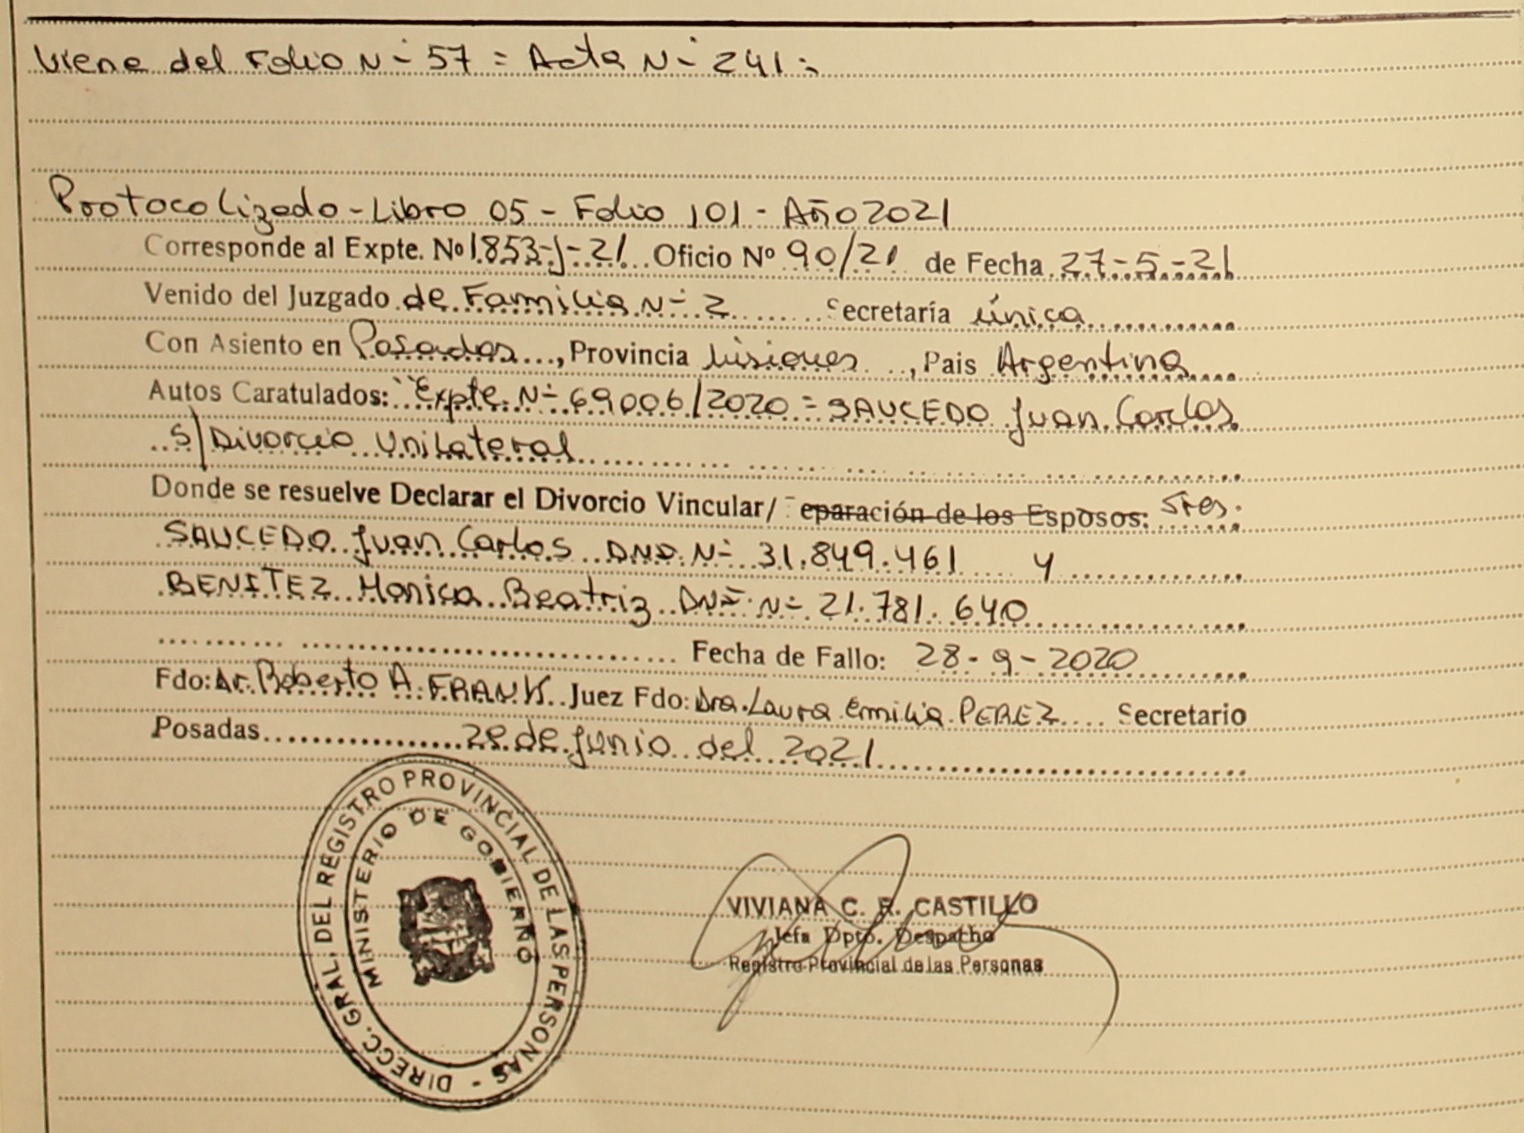 Viene del Folio N- 57 = Acta N- 241 :
Protocolizado - Libro 05 - Folio 101 - Año 2021
Corresponde al Expte. Nº 1853-J-21 Oficio Nº 90/21 de Fecha 27-5-21
Venido del Juzgado de Familia N- 2 Secretaría única
Con Asiento en Posadas, Provincia Misiones, Pais Argentina
Autos Caratulados: "Expte. N- 69006/2020 = SAUCEDO Juan Carlos
S/ Divorcio Unilateral
Donde se resuelve Declarar el Divorcio Vincular/ eparación de los Esposos: Sres.
SAUCEDO Juan Carlos DNI. N- 31.849.461 y
BENITEZ Monica Beatriz DNI N- 21.781.640
Fecha de Fallo: 28-9-2020
Fdo: Dr. Roberto A. FRANK Juez Fdo: Dra. Laura Emilia PEREZ Secretario
Posadas de Junio del 2021
DIRECC. GRAL. DEL REGISTRO PROVINCIAL DE LAS PERSONAS -
MINISTERIO DE GOBIERNO
VIVIANA C. R. CASTILLO
Jefa Dpto. Despacho
Registro Provincial de las Personas